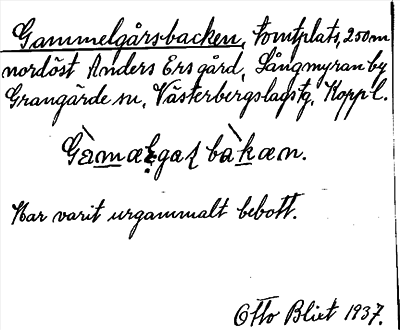 Gammelgårsbacken, tomtplats, 250 m
nordöst Anders Ers gård, Långmyran by
Grangärde sn, Västerbergslags tg, Kopp l.
bàkæn.
Har varit urgammalt bebott.
Otto Blixt 1937.